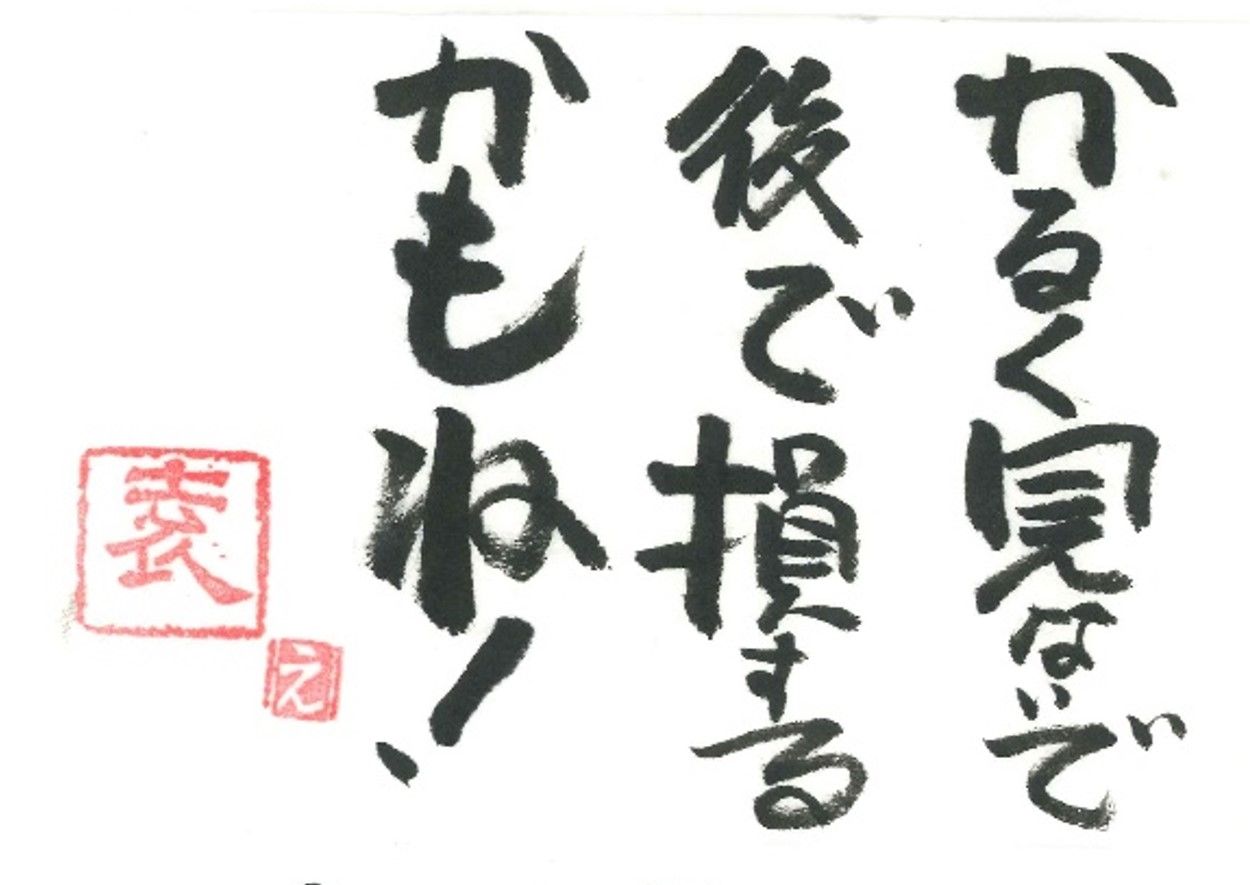 かるく見ないで
後で損する
かもね!
表
え